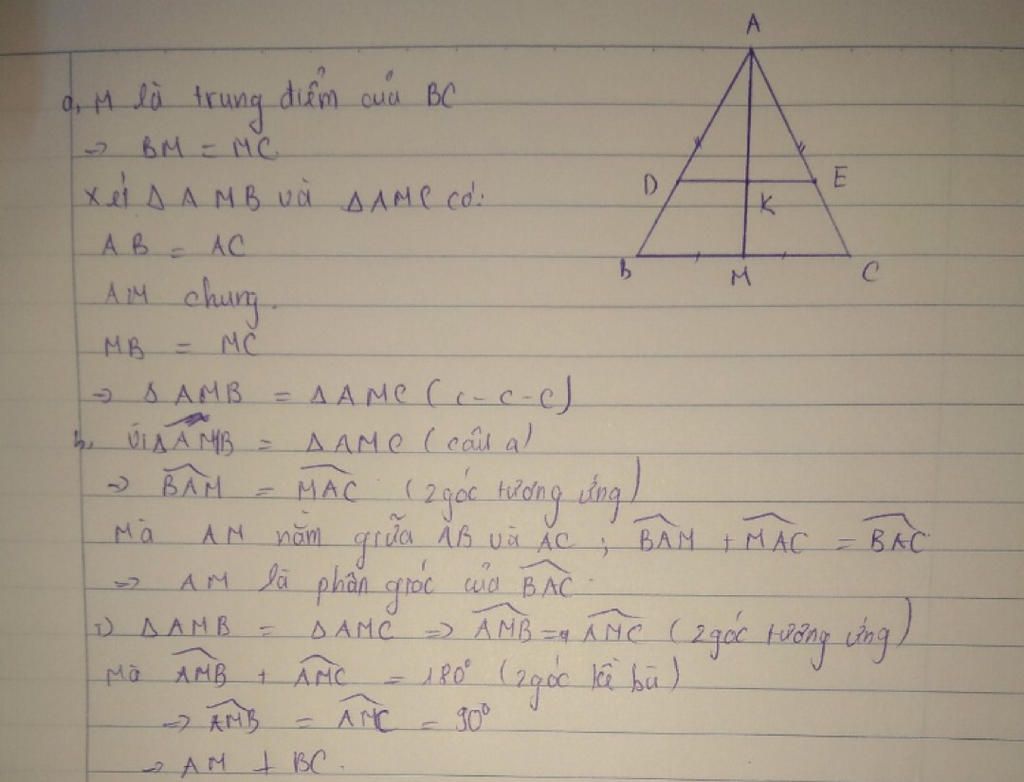 A
a, M là trung điểm của BC
=> BM = MC
D
E
Xét Δ AMB và ΔAMC có:
K
AB = AC
B
M
C
AM chung.
MB = MC
=> Δ AMB = Δ AMC (c-c-c)
b, vì Δ AMB = Δ AMC (câu a)
=> \widehat{BAM} = \widehat{MAC} (2 góc tương ứng)
Mà AM nằm giữa AB và AC ; \widehat{BAM} + \widehat{MAC} = \widehat{BAC}
=> AM là phân giác của \widehat{BAC}.
Δ AMB = Δ AMC => \widehat{AMB} = \widehat{AMC} (2 góc tương ứng)
Mà \widehat{AMB} + \widehat{AMC} = 180° (2 góc kề bù)
=> \widehat{AMB} = \widehat{AMC} = 90°
=> AM ⊥ BC.